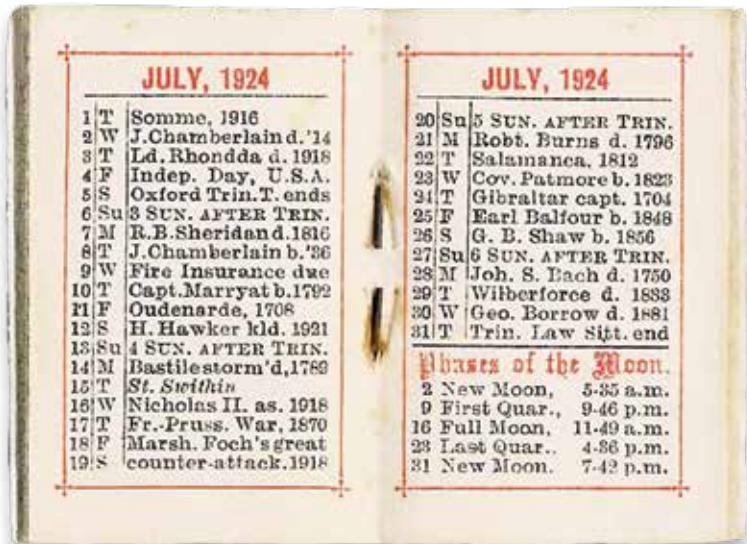 JULY, 1924
1 T Somme, 1916
2 W J. Chamberlain d. '14
3 T Ld. Rhondda d. 1918
4 F Indep. Day, U.S.A.
5 S Oxford Trin. T. ends
6 Su 3 SUN. AFTER TRIN.
7 M R. B. Sheridan d. 1816
8 T J. Chamberlain b. '36
9 W Fire Insurance due
10 T Capt. Marryat b. 1792
11 F Oudenarde, 1708
12 S H. Hawker kld. 1921
13 Su 4 SUN. AFTER TRIN.
14 M Bastile storm'd, 1789
15 T St. Swithin
16 W Nicholas II. as. 1918
17 T Fr.-Pruss. War, 1870
18 F Marsh. Foch's great
19 S counter-attack. 1918
JULY, 1924
20 Su 5 SUN. AFTER TRIN.
21 M Robt. Burns d. 1796
22 T Salamanca, 1812
23 W Cov. Patmore b. 1823
24 T Gibraltar capt. 1704
25 F Earl Balfour b. 1848
26 S G. B. Shaw b. 1856
27 Su 6 SUN. AFTER TRIN.
28 M Joh. S. Bach d. 1750
29 T Wilberforce d. 1833
30 W Geo. Borrow d. 1881
31 T Trin. Law Sitt. end
Phases of the Moon.
2 New Moon, 5-35 a.m.
9 First Quar., 9-46 p.m.
16 Full Moon, 11-49 a.m.
23 Last Quar.. 4-36 p.m.
31 New Moon. 7-42 p.m.